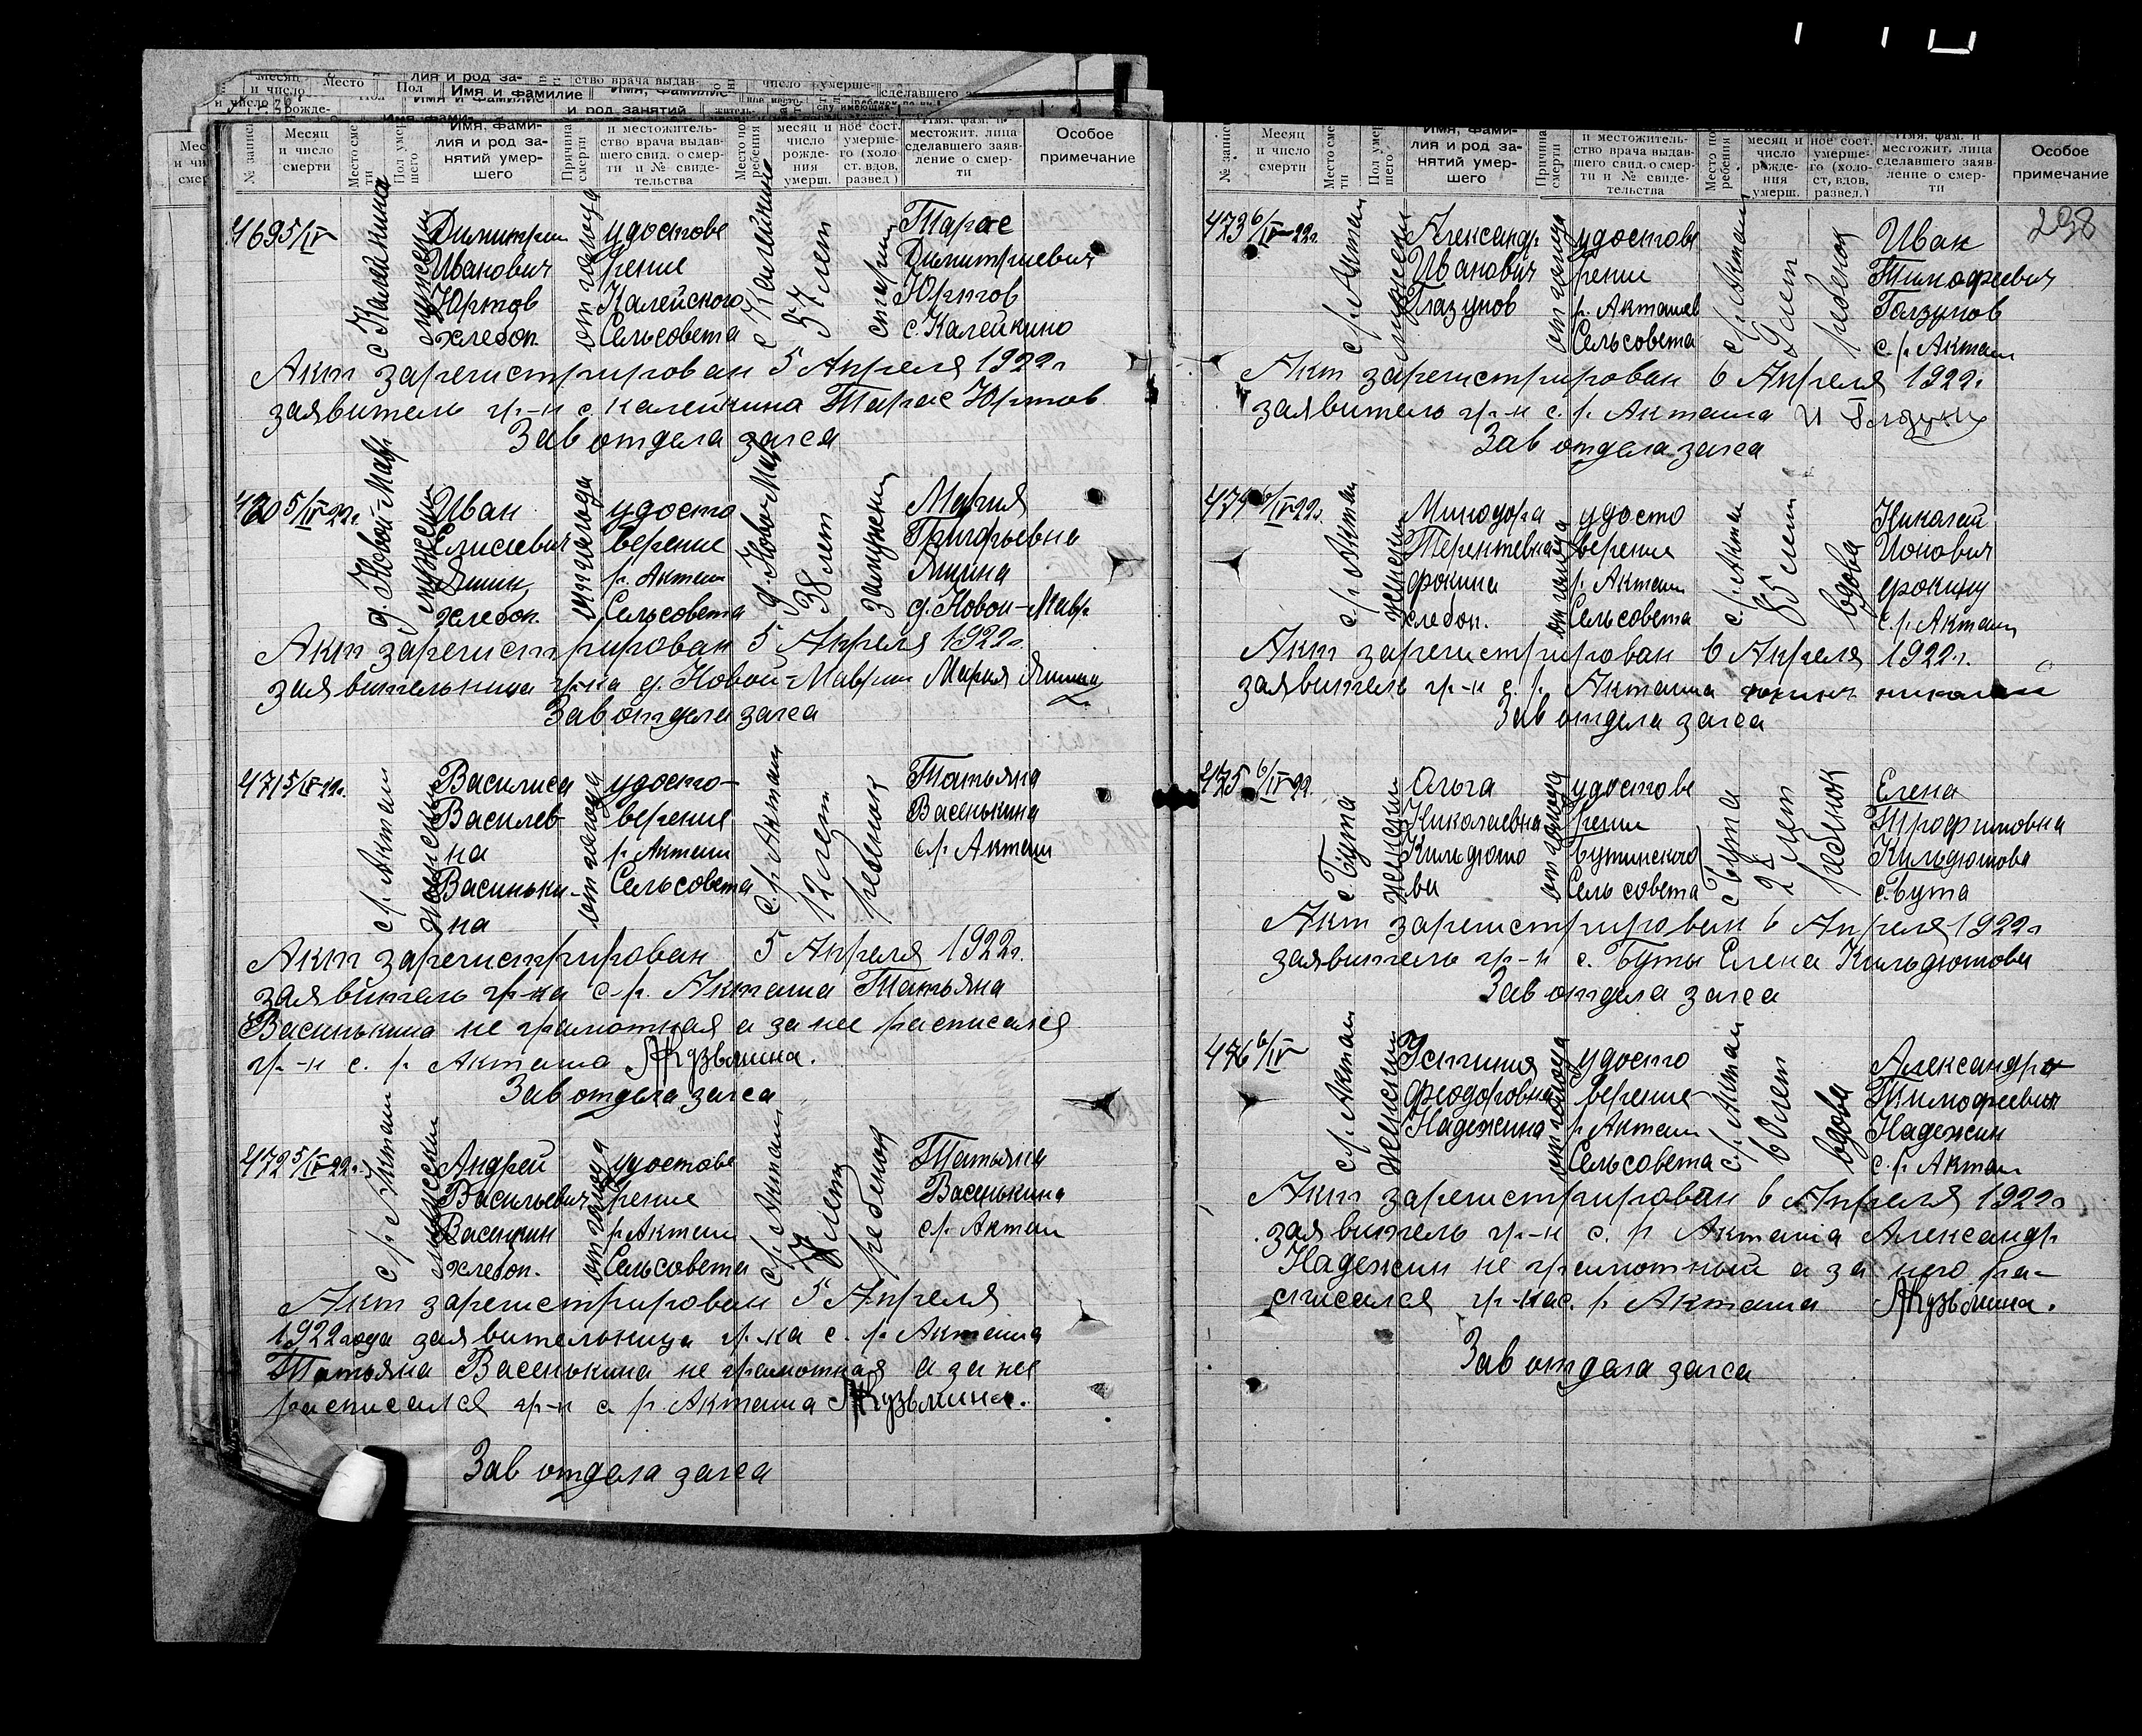 № записи
Месяц и число смерти
Место смерти
Пол умершего
Имя, фамилия и род занятий умершего
Причина смерти
и местожительство врача выдавшего свид. о смерти и № свидетельства
Место погребения
месяц и число рождения умерш.
ное сост. умершего (холост, вдов, развед.)
Имя, фам. и местожит. лица сделавшего заявление о смерти
Особое примечание
469 5/IV
с Калейкина
мужской
Димитрий
Иванович
Юртов
хлебоп.
от голода
удостове
рение
Калейского
Сельсовета
с Калейкино
57 лет
Тарас
Димитриевич
Юртов
с. Калейкино
Акт зарегистрирован 5 Апреля 1922 г
заявитель гр-н с. Калейкина Тарас Юртов
Зав отдела загса
470 5/IV 22г.
д. Новой-Мавр
мужской
Иван
Елисеевич
Яшин
хлебоп.
от голода
удосто
верение
р. Акташ
Сельсовета
д. Новой-Мавр
38 лет
Мария
Григорьевна
Яшина
д. Новой-Мавр.
Акт зарегистрирован 5 Апреля 1922г.
заявительница гр-ка д. Новой-Маврин Мария Яшина
Зав отдела загса
471 5/IV-22г.
с. р. Акташ
женский
Василиса
Василев-
на
Васильки-
на
от голода
удосто-
верение
р. Акташ
Сельсовета
с. р. Акташ
12 лет
ребенок
Татьяна
Васенькина
с. р. Акташ
Акт зарегистрирован 5 Апреля 1922г.
заявитель гр-ка с. р. Акташа Татьяна
Васинькина не грамотная а за нее расписался
гр.-н с. р. Акташа А Кузьмина.
Зав отдела загса
472 5/IV 22г.
с. р. Акташ
мужской
Андрей
Васильевич
Васенкин
хлебоп.
от голода
удостове
рение
р. Акташ
Сельсовета
с. р. Акташ
лет
ребенок
Татьяна
Васенькина
с. р. Акташ
Акт зарегистрирован 5 Апреля
1922 года заявительница гр-ка с. р. Акташа
Татьяна Васенькина не грамотная а за нее
расписался гр-н с. р. Акташа А Кузьмина.
Зав отдела загса
№ записи
Месяц и число смерти
Место смерти
Пол умершего
Имя, фамилия и род занятий умершего
Причина смерти
и местожительство врача выдавшего свид. о смерти и № свидетельства
Место погребения
месяц и число рождения умерш.
ное сост. умершего (холост, вдов, развед.)
Имя, фам. и местожит. лица сделавшего заявление о смерти
Особое примечание
298
473 6/IV-22г.
с. р. Акташ
мужской
Александр
Иванович
Глазунов
от голода
удостове
рение
р. Акташев
Сельсовета
с. р. Акташ
лет
ребенок
Иван
Тимофеевич
Глазунов
с. р. Акташ
Акт зарегистрирован 6 Апреля 1922г.
заявитель гр-н с. р. Акташа И Глазунов
Зав отдела загса
474 6/IV 22г.
с. р. Акташ
женский
Минодора
Терентевна
Фокина
хлебоп.
от голода
удосто
верение
р. Акташ
Сельсовета
с. р. Акташ
85 лет
вдова
Николай
Ионович
Фокину
с. р. Акташ
Акт зарегистрирован 6 Апреля 1922г.
заявитель гр-н с. р. Акташа Фокин николай
Зав отдела загса
475 6/IV 22
с. Бута
женский
Ольга
Николаевна
Кильдюшо
ва
от голода
удостове
рение
Бутинского
Сельсовета
с Бута
2 лет
ребенок
Елена
Трофимовна
Кильдюшова
с. Бута
Акт зарегистрирован 6 Апреля 1922г
заявитель гр-н с. Буты Елена Кильдюшова
Зав отдела загса
476 6/IV
с. р. Акташ
женский
Устиния
Феодоровна
Надежина
от голода
удосто
верение
р. Акташ
Сельсовета
с. р. Акташ
60 лет
вдова
Александра
Тимофеевич
Надежин
с. р. Акташ
Акт зарегистрирован 6 Апреля 1922г
заявитель гр-н с. р Акташа Александр
Надежин не грамотный а за него ра-
списался гр-ка с. р Акташа А Кузьмина.
Зав отдела загса